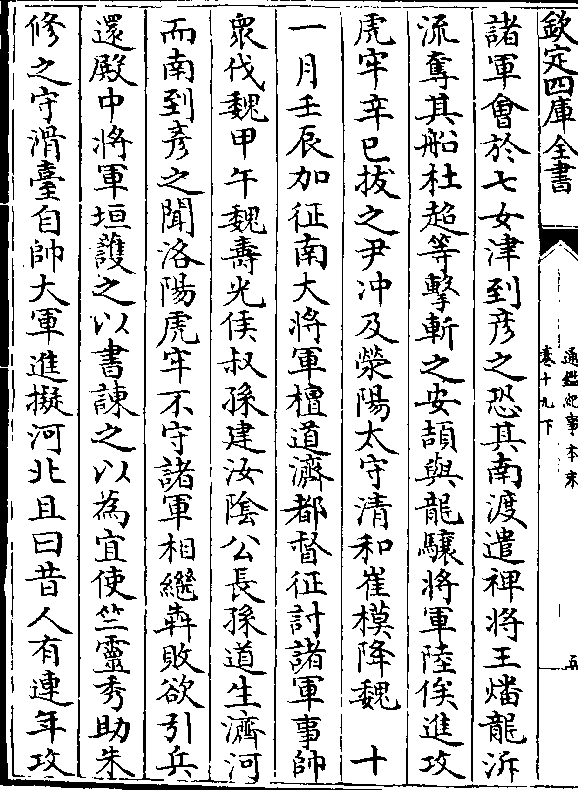 欽定四庫全書
通鑑紀事本末
卷十九下
五
諸軍會於七女津到彦之恐其南渡遣裨將王蟠龍泝
流奪其船杜超等擊斬之安頡與龍驤將軍陸俟進攻
虎牢辛已拔之尹沖及滎陽太守清和崔模降魏　十
一月壬辰加征南大將軍檀道濟都督征討諸軍事帥
衆伐魏甲午魏壽光侯叔孫建汝隂公長孫道生濟河
而南到彦之聞洛陽虎牢不守諸軍相繼奔敗欲引兵
還殿中將軍垣護之以書諫之以為宜使竺靈秀助朱
修之守滑臺自帥大軍進擬河北且曰昔人有連年攻